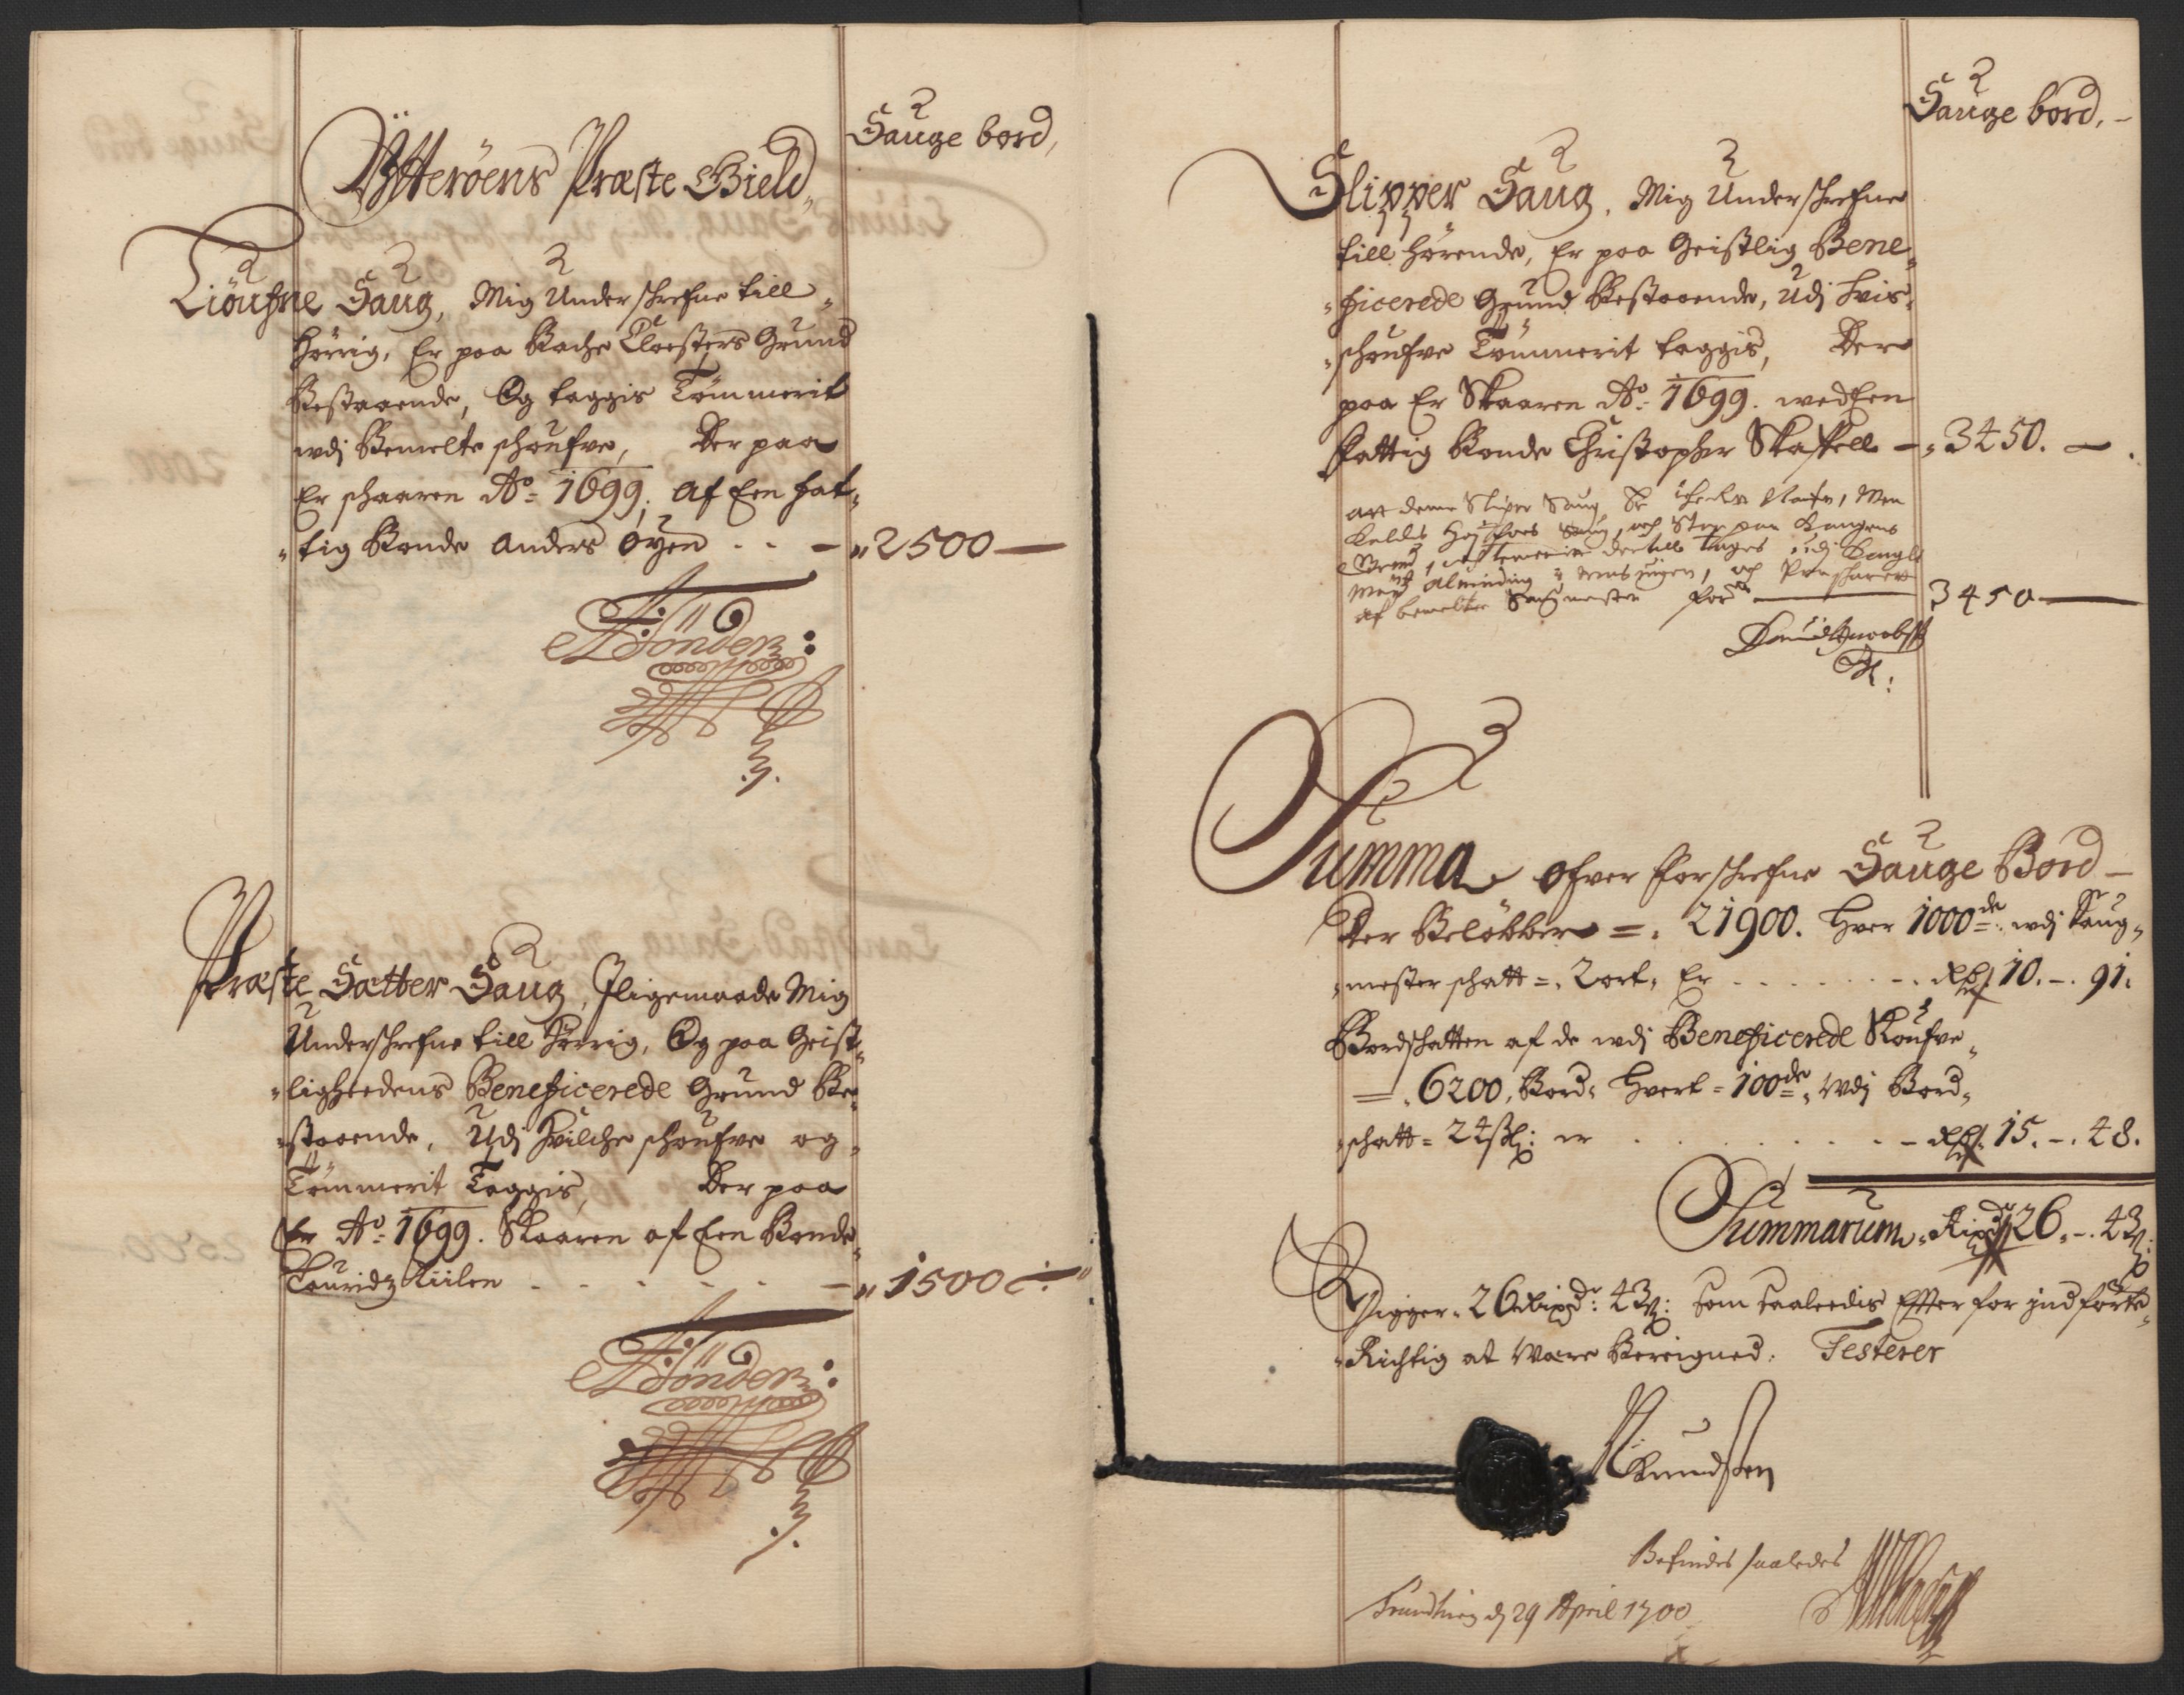 Sauge bord,
Ÿtterøens Præste Gield,
Liøufne Saug, Mig Underschrefne till
hørrig, Er paa Bache Closters Grund
Bestaaende, Og taggis Tømmerit
udj Bemelte schoufve, Der paa
Er schaaren Ao: 1699. af Een fat
tig Bonde Anders Øyen - - - 2500 —
A: Tønder:
Præste Sætter Saug, Jligemaade Mig
Underschrefne till hørrig, Og paa Geist
ligheedens Beneficerede Grund Be
staaende, Udj hvilche schoufve og
Tømmerit Taggis, Der paa
Er Ao: 1699. Skaaren af Een Bonde
Louridz - - - - - 1500
A: Tønder:
Sauge bord,
Slipper Saug, Mig Underschrefne
till hørende, Er paa Geistlig Bene
ficerede Grund Bestaaende, Udj hvis
schoufve Tømmerit taggis, Der
paa Er Skaaren Ao: 1699. wed Een
fattig Bonde Christopher - 3450. —
Saug
Grund
Alminding
af bemelte for 3450 —
Summa ofver forschrefne Sauge Bord —
Der Beløbber =. 21900. Hver 1000de udj Saug
mester schatt =. 2 ort, Er - - - - - 10. -. 91.
Bordschatten af de udj Beneficerede Skoufve
=. 6200, Bord, Hvert = 100de, Udj Bord
schatt = 24 sk: er - - - - 15. -. 48.
Summarum, Rixdr 26. -. 43
Siger. 26 Rixdr: 43 Som saaledis Efter for indførte
Richtig at Være Beregned. Testerer
Knudsen
Befindes saaledes
Trundhiem d 29 April 1700